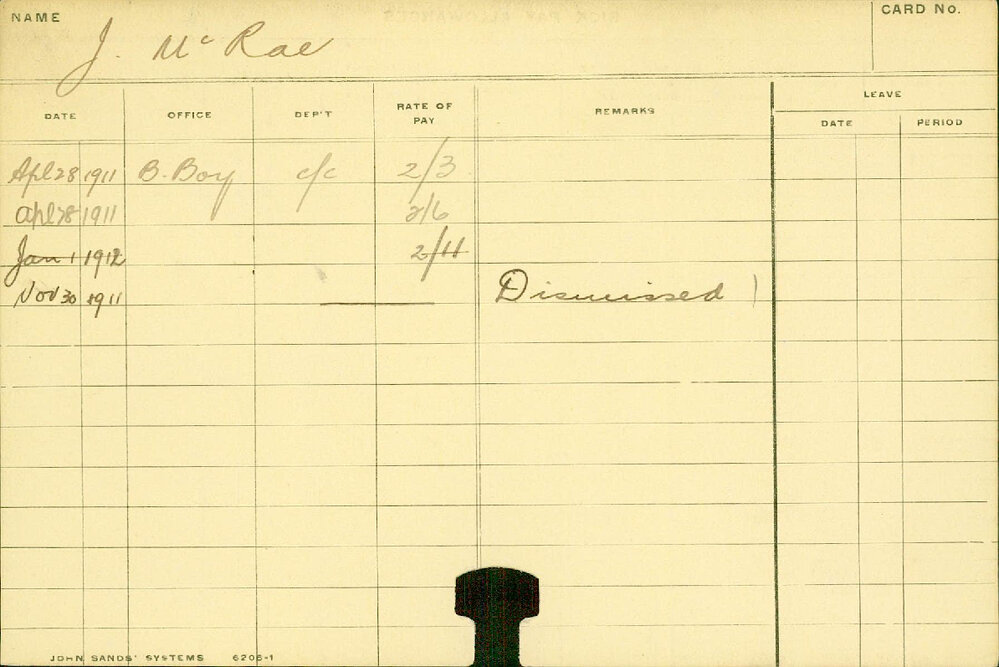 NAME CARD NO.
J. McRae
LEAVE
DATE OFFICE DEP'T RATE OF PAY REMARKS DATE PERIOD
Apl 28 1911 B. Boy c/c 2/3
Apl 28 1911 2/6
Jan 1 1912 2/11
Nov 30 1911 Dismissed
JOHN SANDS' SYSTEMS 6206-1